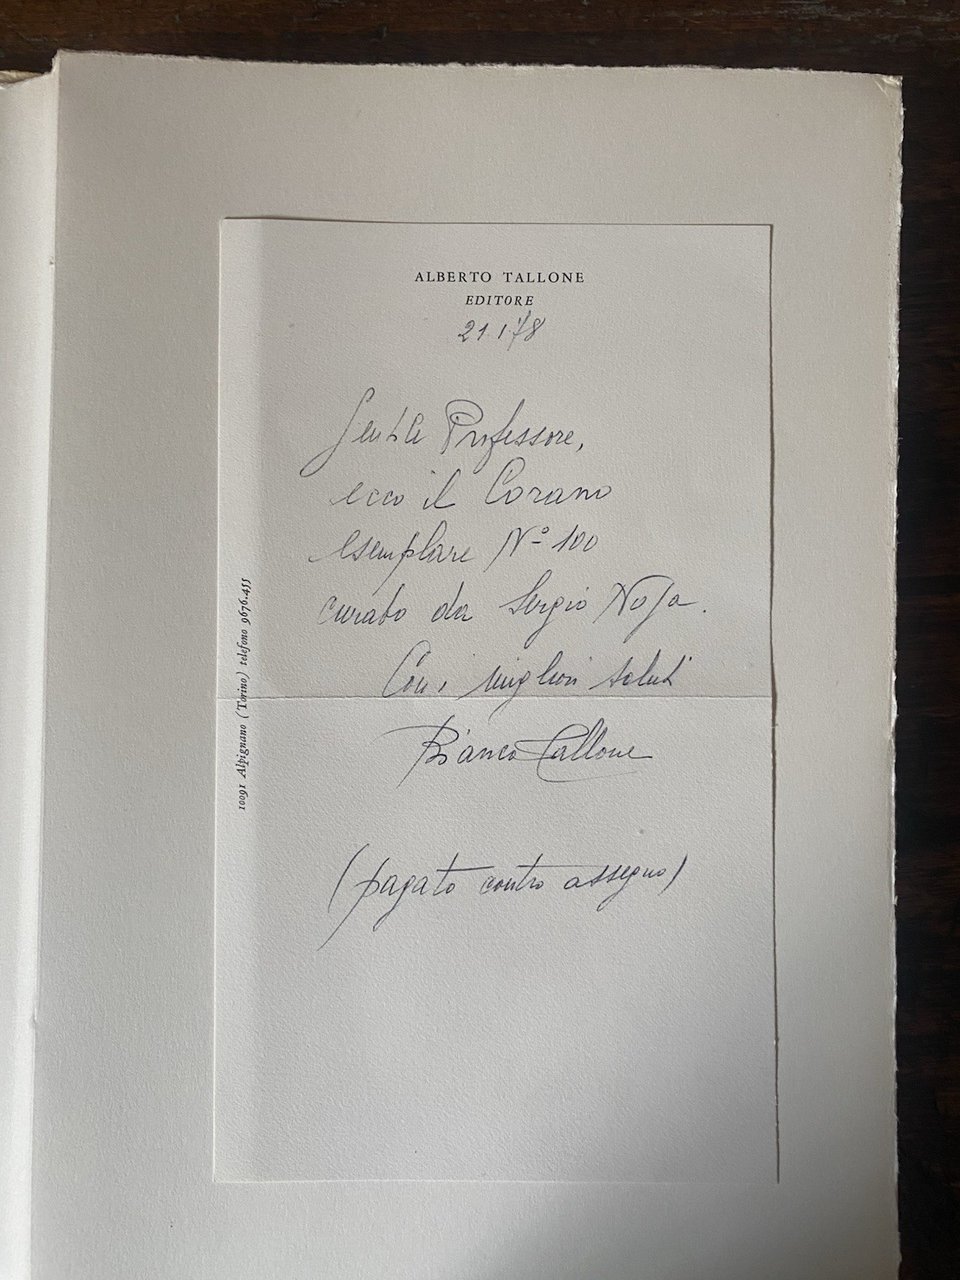 ALBERTO TALLONE
EDITORE
21.1.78
Gentile Professore,
ecco il Corano
esemplare Nº 100
curato da Sergio Noja.
Con i migliori saluti
Bianca Tallone
(pagato contro assegno)
10091 Alpignano (Torino) telefono 9676.455